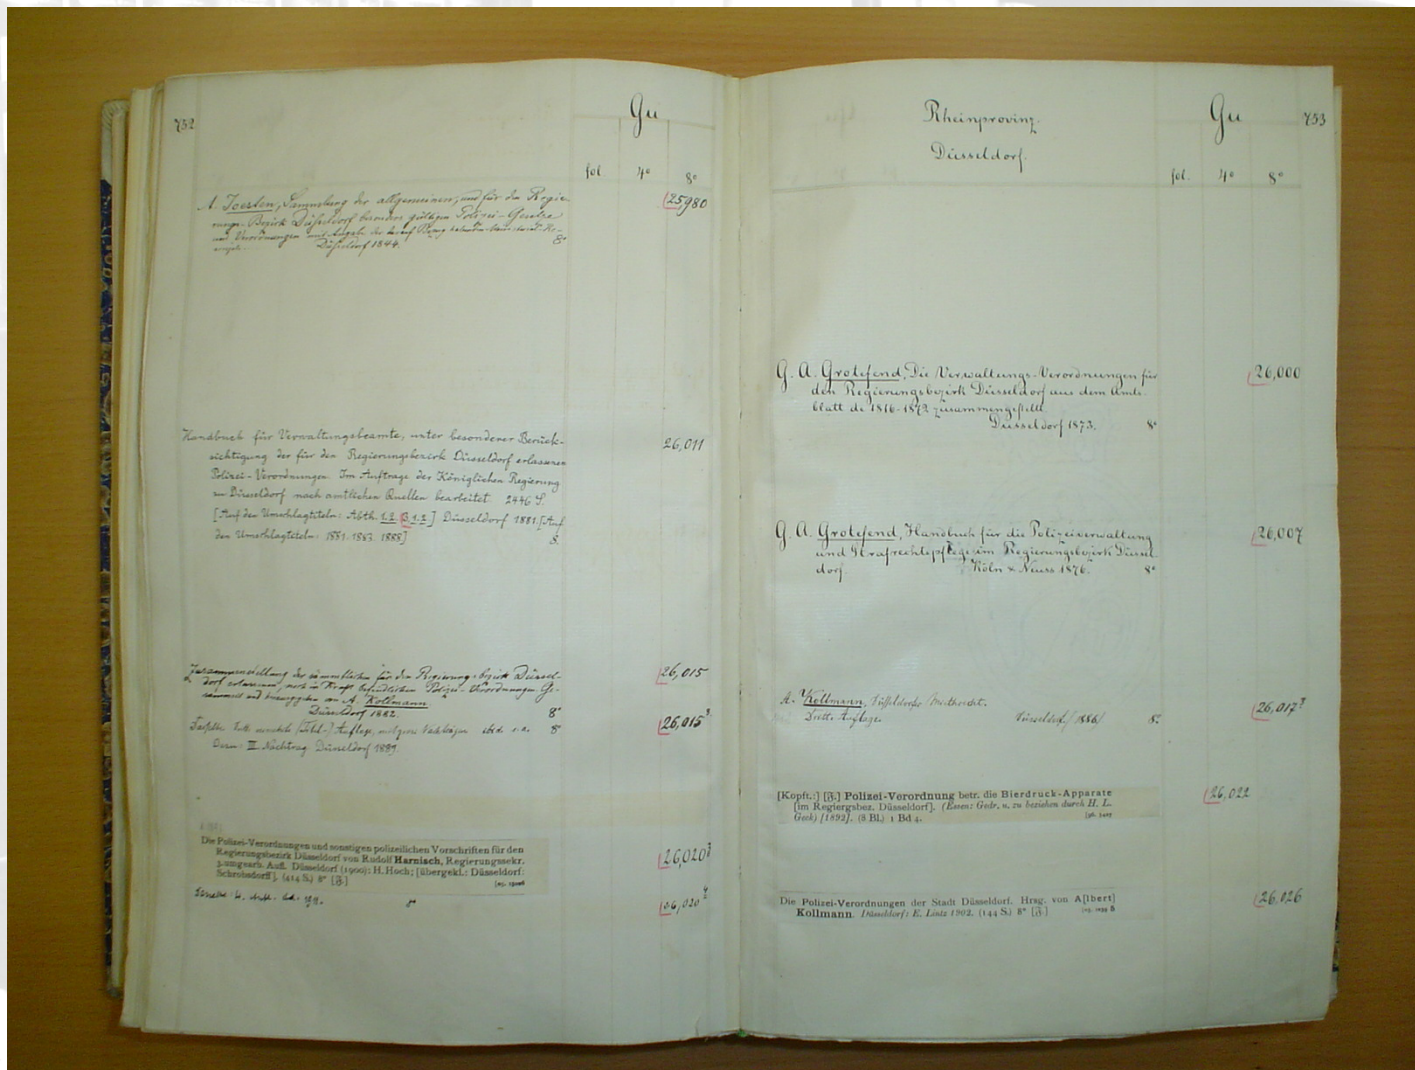 752
Gu
fol. 4° 8°
A. Joesten, Sammlung der allgemeinen, und für den Regie- 25980
rungs-Bezirk Düsseldorf besonders gültigen Polizei-Gesetze
und Verordnungen mit Angabe der darauf Bezug habenden
Düsseldorf 1844. 8°
Handbuch für Verwaltungsbeamte, unter besonderer Berück- 26,011
sichtigung der für den Regierungsbezirk Düsseldorf erlassenen
Polizei-Verordnungen. Im Auftrage der Königlichen Regierung
zu Düsseldorf nach amtlichen Quellen bearbeitet 2446 S.
[Auf den Umschlagtiteln: Abth. 1.2. 3,1.2.] Düsseldorf 1881. [Auf
den Umschlagtiteln: 1881. 1883. 1888] 8.
Zusammenstellung der sämmtlichen für den Regierungsbezirk Düssel- 26,015
dorf erlassenen, noch in Kraft befindlichen Polizei-Verordnungen. Ge-
sammelt und herausgegeben von A. Kollmann
Düsseldorf 1882. 8°
Dasselbe. Auflage, Nachträgen ebd. s.a. 8° 26,015
Dazu: II. Nachtrag Düsseldorf 1889.
Die Polizei-Verordnungen und sonstigen polizeilichen Vorschriften für den
Regierungsbezirk Düsseldorf von Rudolf Harnisch, Regierungssekr. 26,020³
3. umgearb. Aufl. Düsseldorf (1900): H. Hoch; [übergekl.: Düsseldorf:
Schrobsdorff]. (414 S.) 8° [F.]
Dasselbe: 4. 8° 26,020⁴
Rheinprovinz.
Düsseldorf.
Gu
753
fol. 4° 8°
G. A. Grotefend, Die Verwaltungs-Verordnungen für 26,000
den Regierungsbezirk Düsseldorf aus dem Amts-
blatt de 1816-1872 zusammengestellt.
Düsseldorf 1873. 8°
G. A. Grotefend, Handbuch für die Polizeiverwaltung 26,007
und Strafrechtspflege im Regierungsbezirk Düssel-
dorf. Köln & Neuss 1876. 8°
A. Kollmann, Düsseldorfer Miethrecht. 26,017³
Dritte Auflage. Düsseldorf (1886) 8°
[Kopft.:] [F.] Polizei-Verordnung betr. die Bierdruck-Apparate 26,022
[im Regiergsbez. Düsseldorf]. (Essen: Gedr. u. zu beziehen durch H. L.
Geck) [1892]. (8 Bl.) 1 Bd 4.
Die Polizei-Verordnungen der Stadt Düsseldorf. Hrsg. von A[lbert] 26,026
Kollmann. Düsseldorf: E. Lintz 1902. (144 S.) 8° [F.]